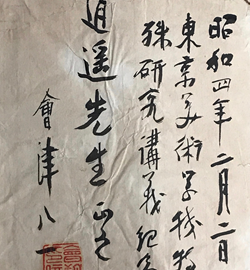 昭和四年二月二日
東京美術学校特
殊研究講義紀念
逍遥先生 正之
會津八一